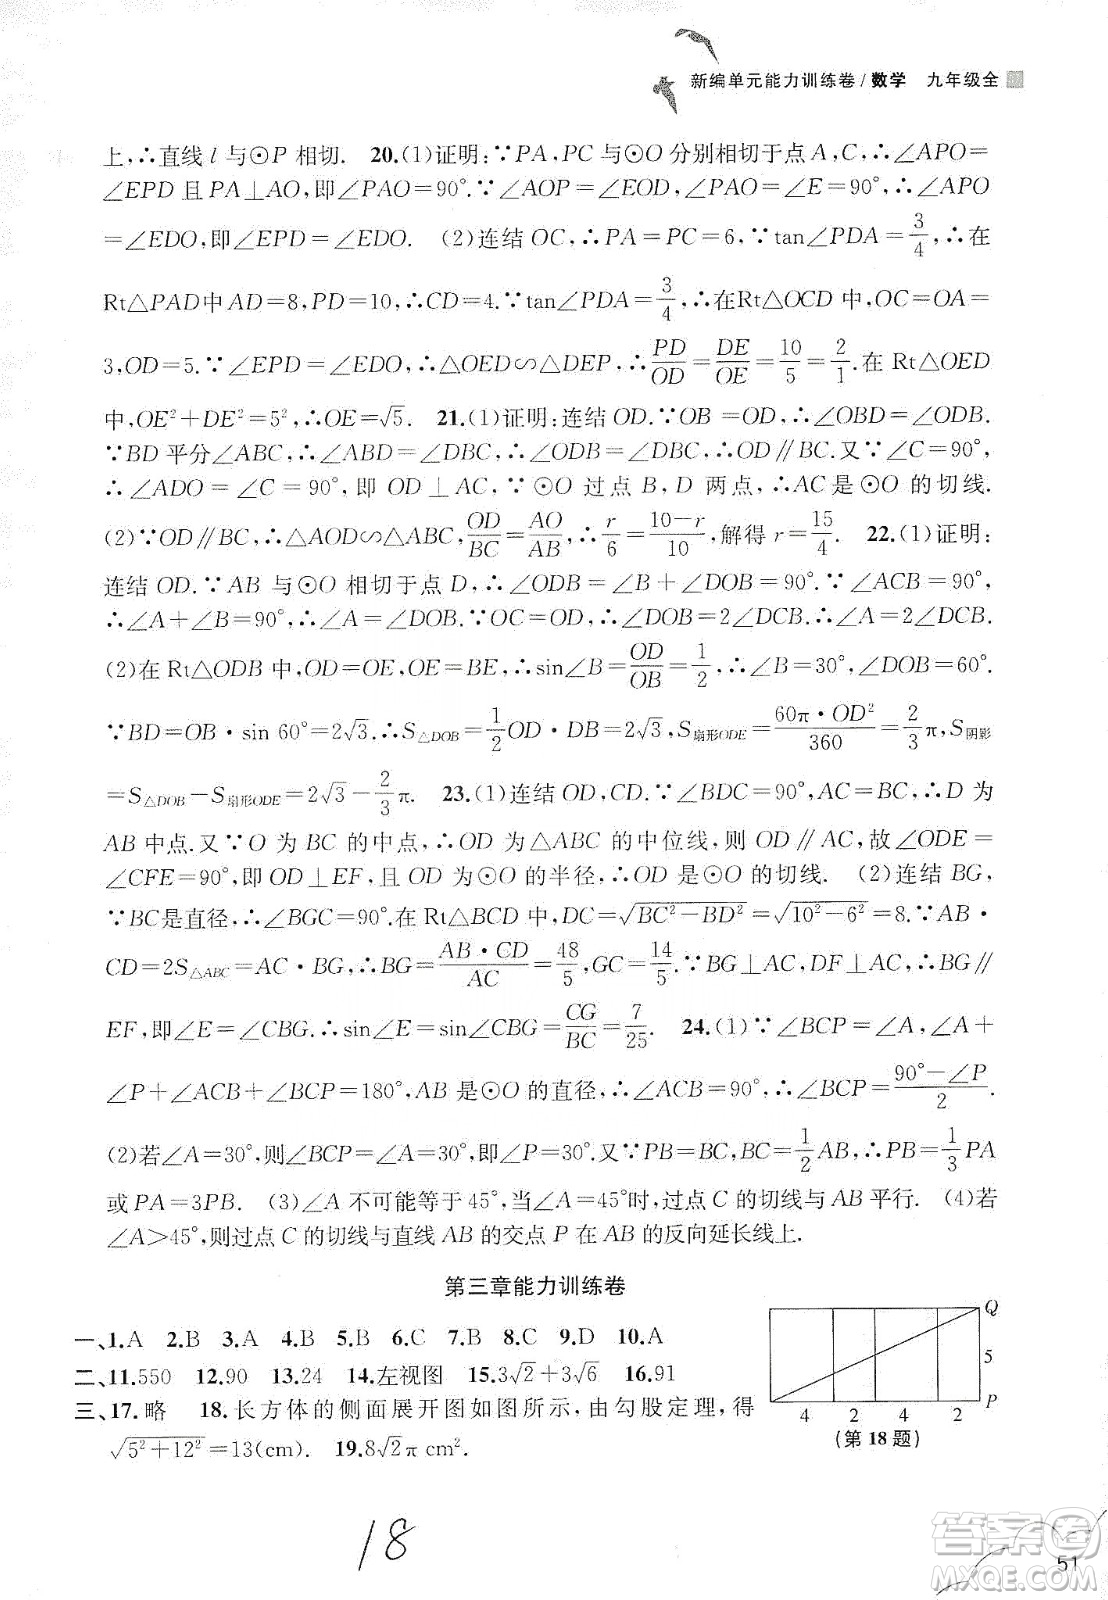 新编单元能力训练卷/数学 九年级全
上,∴直线 l 与⊙P 相切. 20.(1)证明:∵PA,PC与⊙O 分别相切于点 A,C,∴∠APO=
∠EPD 且 PA⊥AO,即∠PAO=90°.∵∠AOP=∠EOD,∠PAO=∠E=90°,∴∠APO
=∠EDO,即∠EPD=∠EDO. (2)连结 OC,∴PA=PC=6,∵tan∠PDA=3/4,∴在
Rt△PAD中 AD=8,PD=10,∴CD=4.∵tan∠PDA=3/4,∴在Rt△OCD 中,OC=OA=
3,OD=5.∵∠EPD=∠EDO,∴△OED∽△DEP,∴PD/OD=DE/OE=10/5=2/1.在 Rt△OED
中,OE²+DE²=5²,∴OE=√5. 21.(1)证明:连结 OD.∵OB=OD,∴∠OBD=∠ODB.
∵BD 平分∠ABC,∴∠ABD=∠DBC,∴∠ODB=∠DBC,∴OD∥BC.又∵∠C=90°,
∴∠ADO=∠C=90°,即 OD⊥AC,∵⊙O 过点 B,D 两点,∴AC是⊙O 的切线.
(2)∵OD∥BC,∴△AOD∽△ABC,OD/BC=AO/AB,∴r/6=(10-r)/10,解得 r=15/4. 22.(1)证明:
连结 OD.∵AB 与⊙O 相切于点 D,∴∠ODB=∠B+∠DOB=90°.∵∠ACB=90°,
∴∠A+∠B=90°,∴∠A=∠DOB.∵OC=OD,∴∠DOB=2∠DCB.∴∠A=2∠DCB.
(2)在 Rt△ODB 中,OD=OE,OE=BE,∴sin∠B=OD/OB=1/2,∴∠B=30°,∠DOB=60°.
∵BD=OB·sin 60°=2√3.∴S△DOB=1/2OD·DB=2√3,S扇形ODE=60π·OD²/360=2/3π,S阴影
=S△DOB-S扇形ODE=2√3-2/3π. 23.(1)连结 OD,CD.∵∠BDC=90°,AC=BC,∴D 为
AB 中点.又∵O 为 BC 的中点,∴OD 为△ABC 的中位线,则 OD∥AC,故∠ODE=
∠CFE=90°,即 OD⊥EF,且 OD 为⊙O 的半径,∴OD 是⊙O 的切线. (2)连结 BG,
∵BC是直径,∴∠BGC=90°.在 Rt△BCD 中,DC=√(BC²-BD²)=√(10²-6²)=8.∵AB·
CD=2S△ABC=AC·BG,∴BG=AB·CD/AC=48/5,GC=14/5.∵BG⊥AC,DF⊥AC,∴BG∥
EF,即∠E=∠CBG.∴sin∠E=sin∠CBG=CG/BC=7/25. 24.(1)∵∠BCP=∠A,∠A+
∠P+∠ACB+∠BCP=180°,AB 是⊙O 的直径,∴∠ACB=90°,∴∠BCP=(90°-∠P)/2.
(2)若∠A=30°,则∠BCP=∠A=30°,即∠P=30°.又∵PB=BC,BC=1/2AB,∴PB=1/3PA
或 PA=3PB. (3)∠A 不可能等于 45°,当∠A=45°时,过点 C 的切线与 AB 平行. (4)若
∠A>45°,则过点 C 的切线与直线 AB 的交点 P 在 AB 的反向延长线上.
第三章能力训练卷
一、1.A 2.B 3.A 4.B 5.B 6.C 7.B 8.C 9.D 10.A
二、11.550 12.90 13.24 14.左视图 15.3√2+3√6 16.91
三、17.略 18.长方体的侧面展开图如图所示,由勾股定理,得
√(5²+12²)=13(cm). 19.8√2π cm².
Q
5
P
4 2 4 2
(第18题)
18
答案圈
MXQE.COM
51